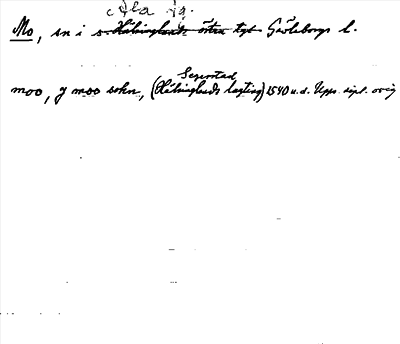 Ala tg.
Mo, sn i s. Hälsinglands östra tgl. Gävleborgs l.
Segerstad
moo, J moo sokn, (Hälsinglands lagting) 1540 u.d. Upps. dipl. orig